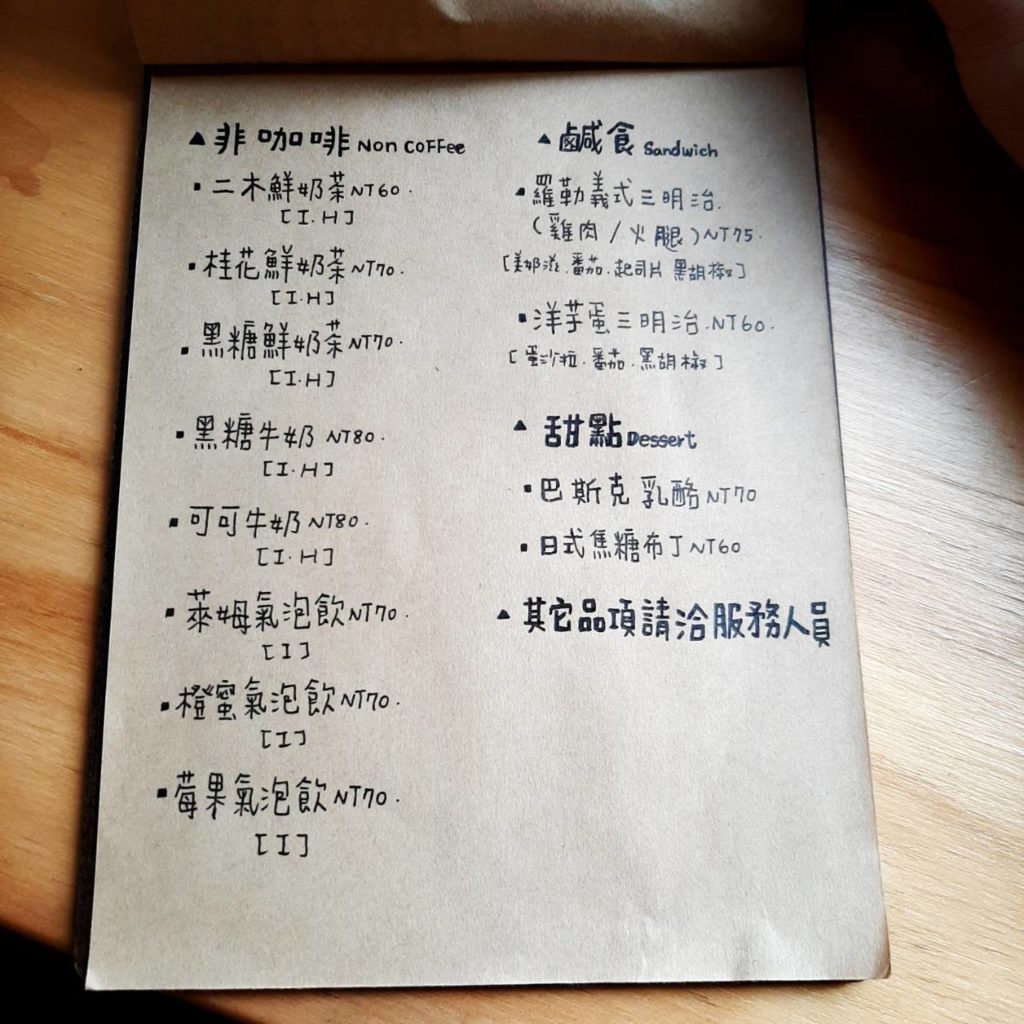 ▲非咖啡 Non Coffee
▪二木鮮奶茶NT60.
[I.H]
▪桂花鮮奶茶NT70.
[I.H]
▪黑糖鮮奶茶NT70.
[I.H]
▪黑糖牛奶 NT80.
[I.H]
▪可可牛奶NT80.
[I.H]
▪萊姆氣泡飲NT70.
[I]
▪橙蜜氣泡飲NT70.
[I]
▪莓果氣泡飲NT70.
[I]
▲鹹食 Sandwich
▪羅勒義式三明治.
(雞肉/火腿)NT75.
[美奶滋.番茄.起司片.黑胡椒]
▪洋芋蛋三明治.NT60.
[蛋沙拉.番茄.黑胡椒]
▲甜點Dessert
▪巴斯克乳酪NT70
▪日式焦糖布丁NT60
▲其它品項請洽服務人員